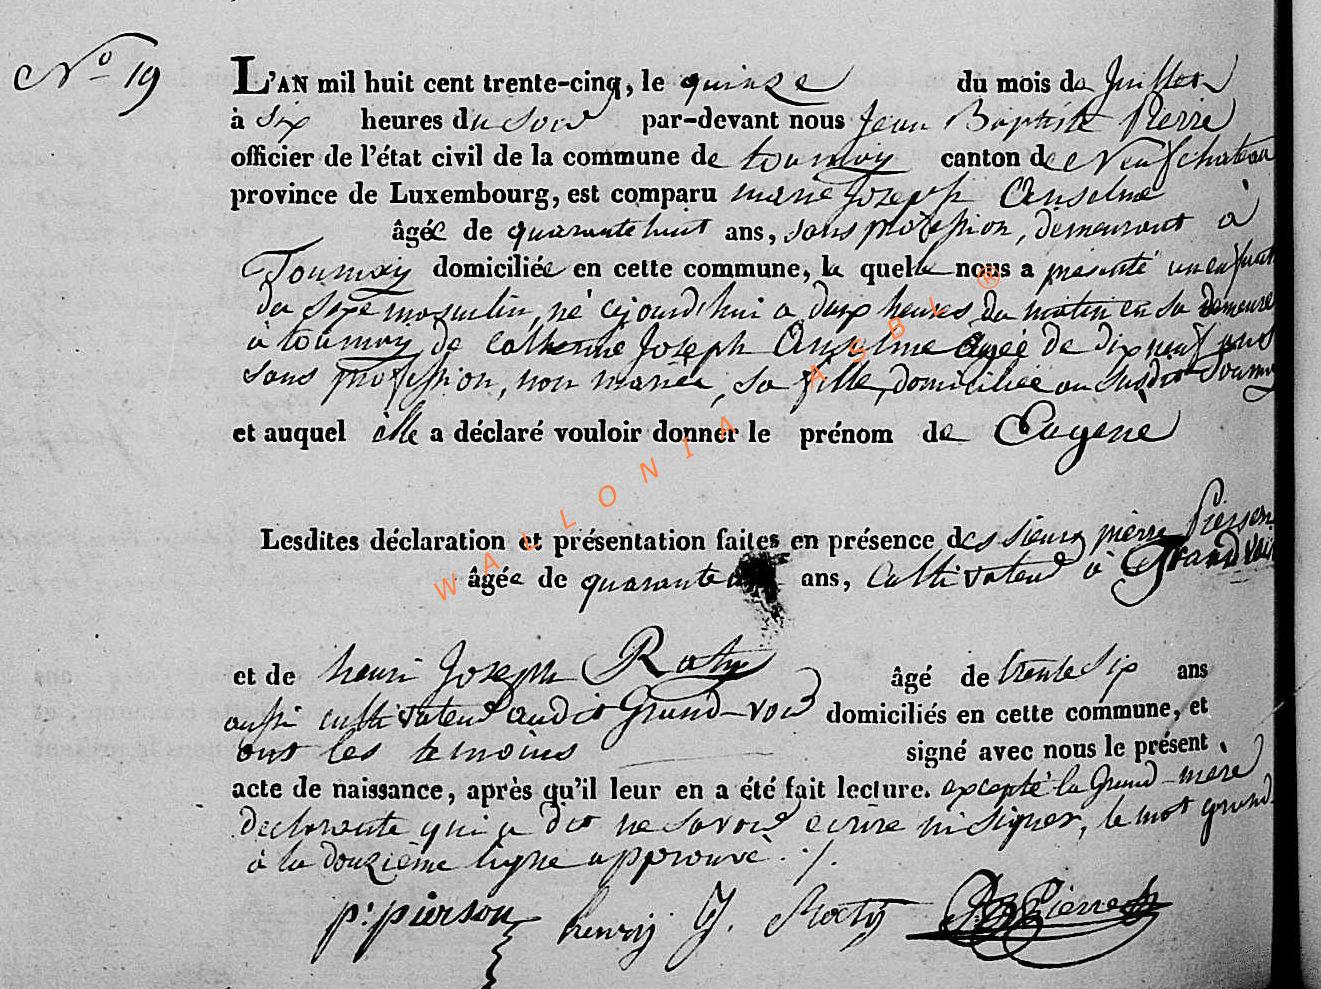 N° 19
L'AN mil huit cent trente-cinq, le quinze du mois de Juillet
à six heures du soir par-devant nous Jean Baptiste Pierre
officier de l'état civil de la commune de tournay canton de Neufchateau
province de Luxembourg, est comparu marie Joseph Anselme
âgée de quarante huit ans, sans profession, demeurant à
Tournay domiciliée en cette commune, la quelle nous a présenté un enfant
du sexe masculin, né cejourd'hui a deux heures du matin en sa demeure
à tournay de Catherine Joseph Anselme agée de dix neuf ans
sans profession, non mariée, sa fille, domiciliée au susdit Tournay
et auquel elle a déclaré vouloir donner le prénom de Eugène
Lesdites déclaration et présentation faites en présence des sieurs pierre Pierson
âgée de quarante ans, Cultivateur à Grandvoir
et de henri Joseph Roty âgé de trente six ans
aussi cultivateur audit Grand-voir domiciliés en cette commune, et
ont les temoins signé avec nous le présent
acte de naissance, après qu'il leur en a été fait lecture. excepté la Grand-mere
declarante qui a dit ne savoir écrire ni signer, le mot grand
à la douzième ligne approuvé ./.
p: pierson henry J. Roty Pierre
WALLONIA ASBL ®